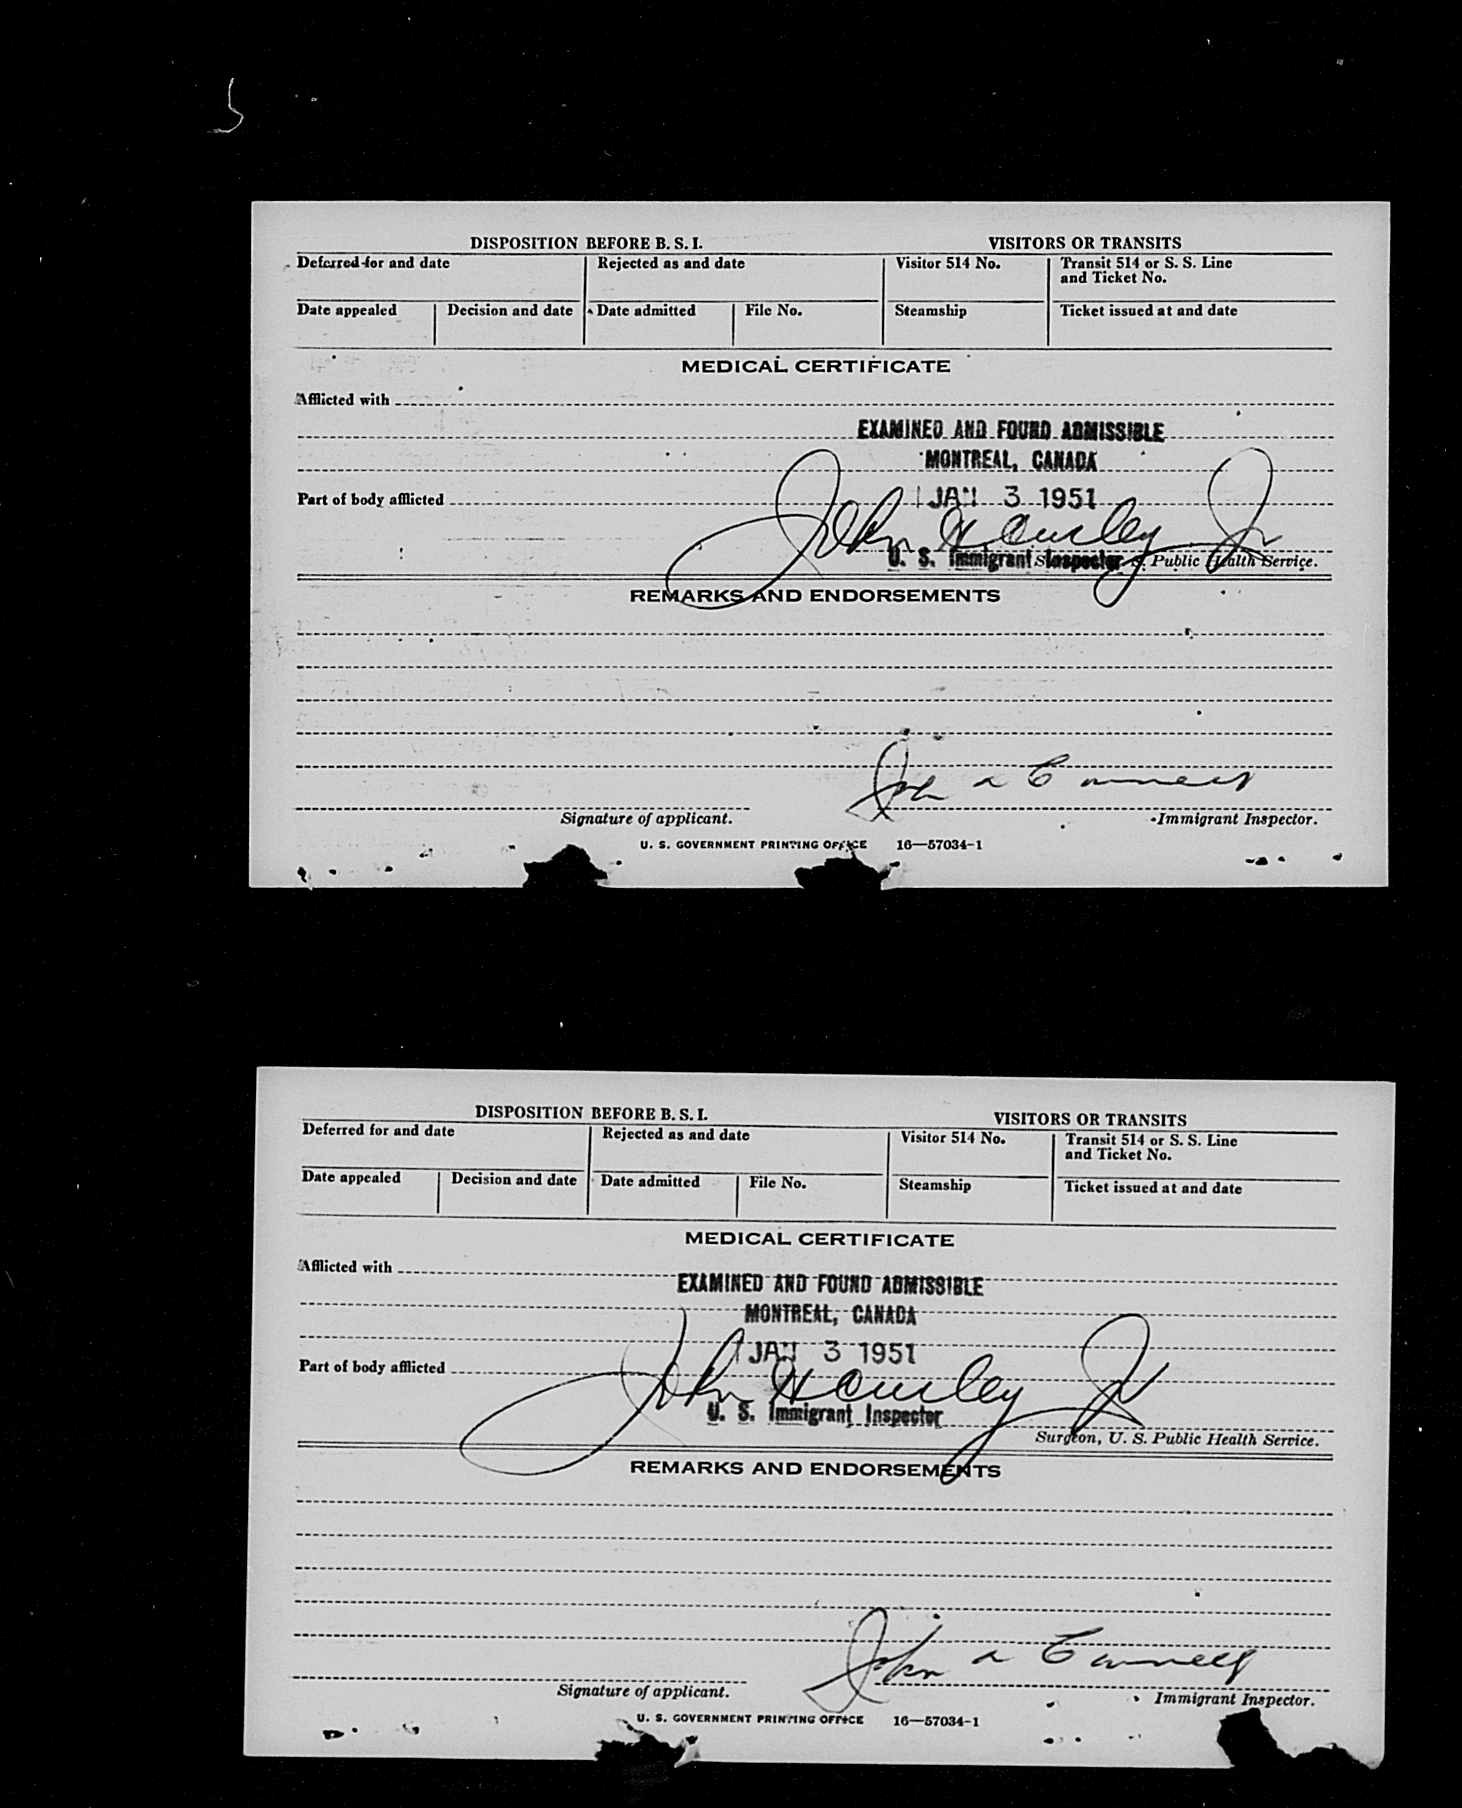 DISPOSITION BEFORE B. S. I. VISITORS OR TRANSITS
Deferred for and date Rejected as and date Visitor 514 No. Transit 514 or S. S. Line
and Ticket No.
Date appealed Decision and date Date admitted File No. Steamship Ticket issued at and date
MEDICAL CERTIFICATE
Afflicted with
EXAMINED AND FOUND ADMISSIBLE
MONTREAL, CANADA
Part of body afflicted JAN 3 1951
John Jr
U. S. Immigrant Inspector Public Health Service.
REMARKS AND ENDORSEMENTS
John a Connell
Signature of applicant. Immigrant Inspector.
U. S. GOVERNMENT PRINTING OFFICE 16—57034-1
DISPOSITION BEFORE B. S. I. VISITORS OR TRANSITS
Deferred for and date Rejected as and date Visitor 514 No. Transit 514 or S. S. Line
and Ticket No.
Date appealed Decision and date Date admitted File No. Steamship Ticket issued at and date
MEDICAL CERTIFICATE
Afflicted with
EXAMINED AND FOUND ADMISSIBLE
MONTREAL, CANADA
JAN 3 1951
Part of body afflicted
John Jr
U. S. Immigrant Inspector
Surgeon, U. S. Public Health Service.
REMARKS AND ENDORSEMENTS
John a Connell
Signature of applicant. Immigrant Inspector.
U. S. GOVERNMENT PRINTING OFFICE 16—57034-1